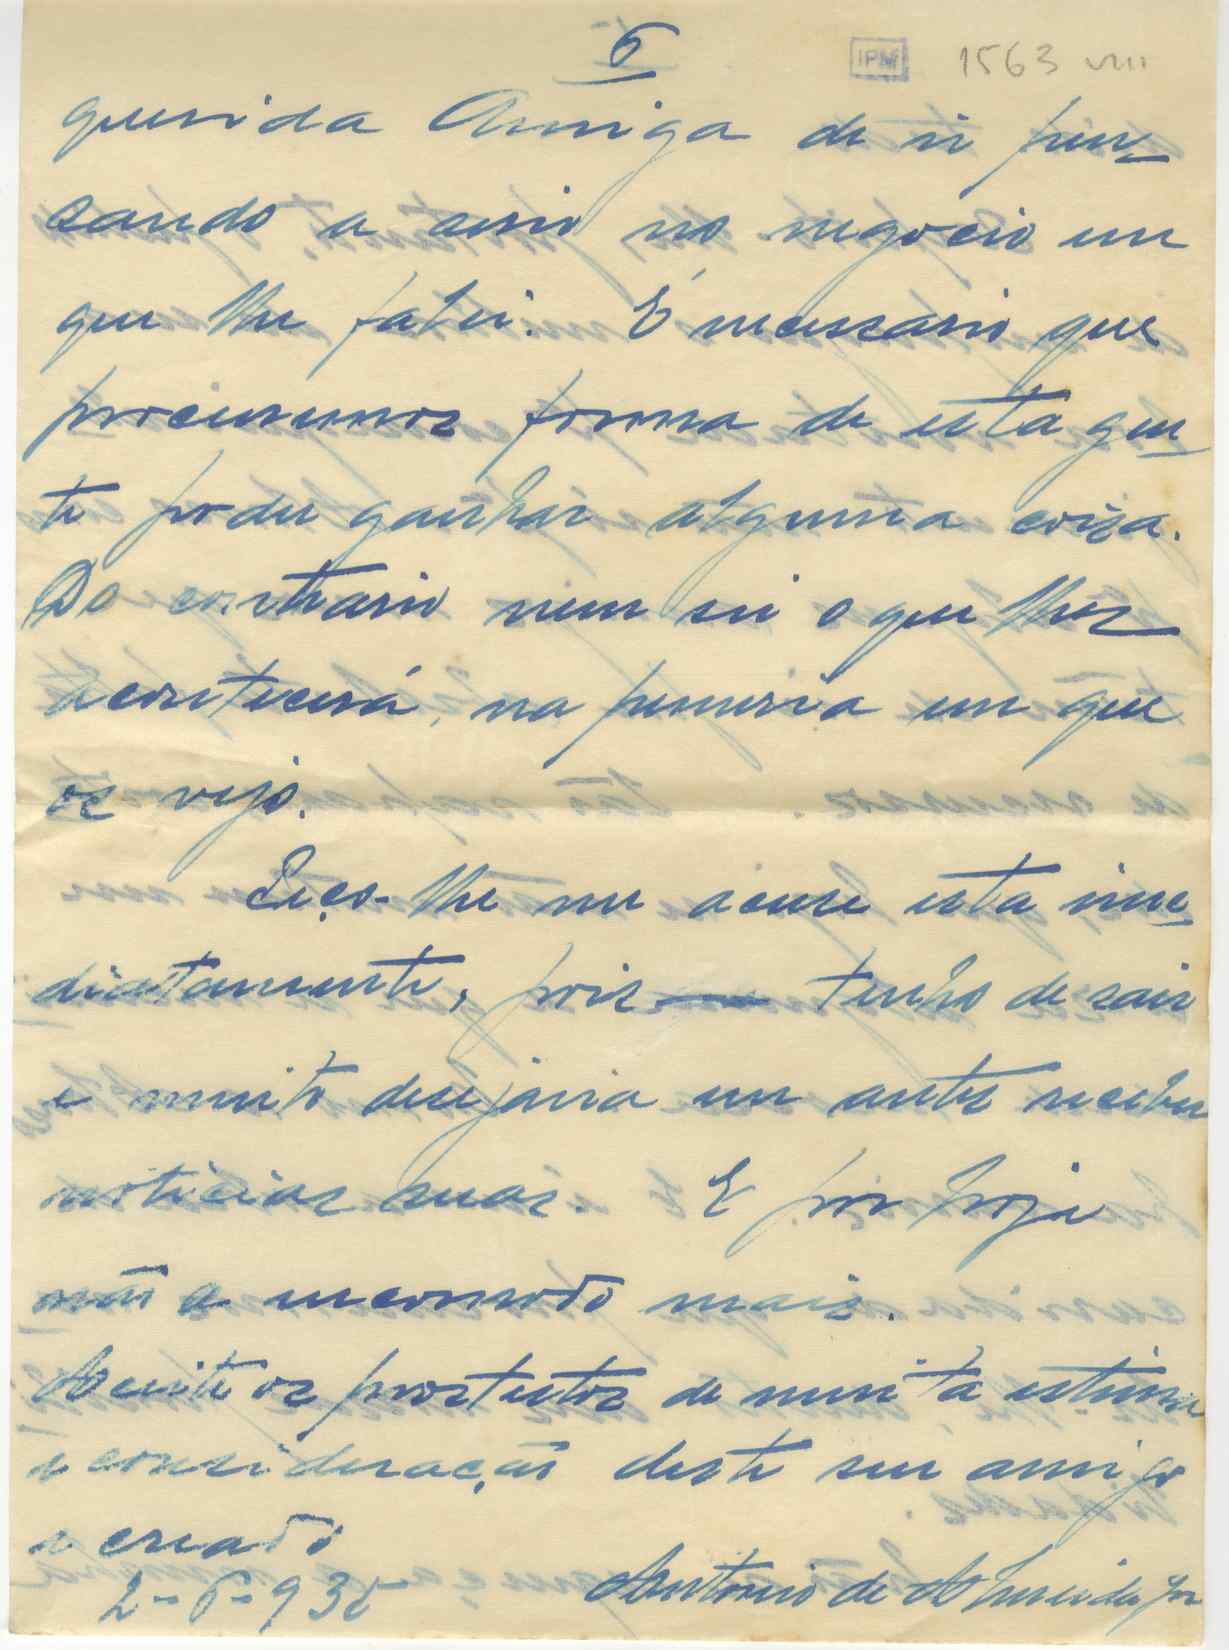 6
IPM 1563 VIII
querida Amiga de ir pen-
sando a serio no negocio em
que lhe falei. É necessário que
procuremos forma de esta gen-
te poder ganhar alguma coisa.
Do contrario nem sei o que lhes
acontecerá, na penuria em que
os vejo.
Peço-lhe me acuse esta ime-
diatamente, pois tenho de sair
e muito desejaria em antes receber
noticias suas. E por hoje
não a incomodo mais.
Aceite os protestos de muita estima
e consideração deste seu amigo
e criado
2-6-935 Antonio de Almeida